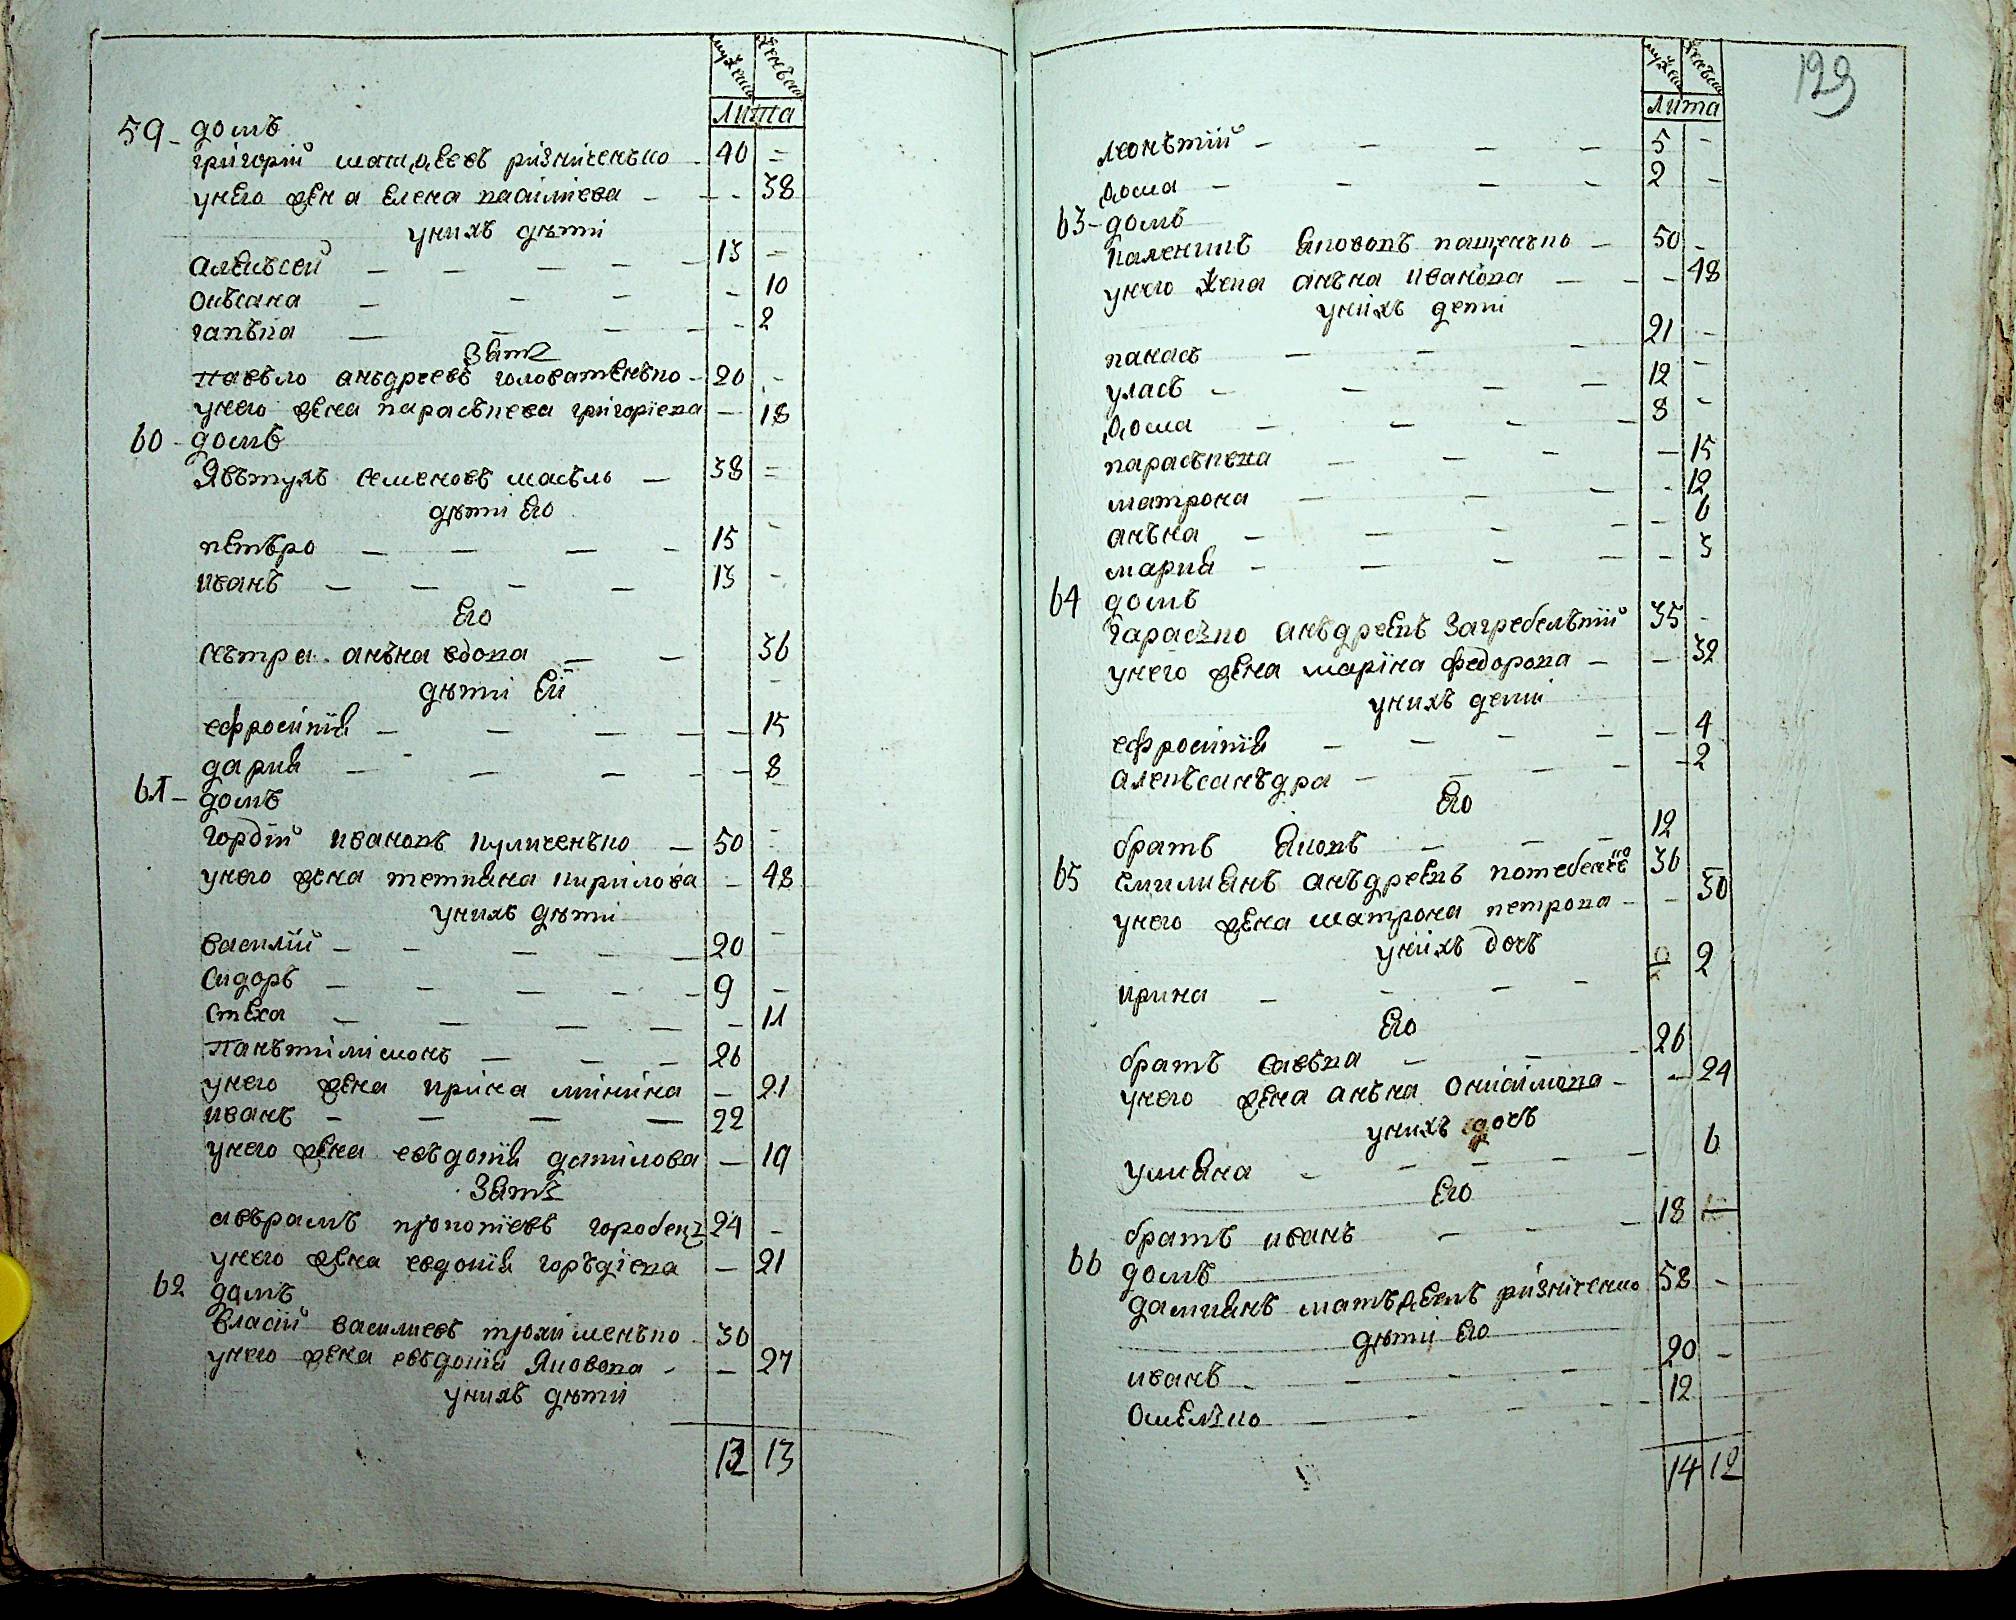 мужеска женъска
Лита
59 - домъ
григорій матѳеевъ різниченъко - 40 =
унего жена Елена василіева - - - 38
унихъ дѣти
Алеѯсей - - - - - 13 -
Оксана - - - - 10
гапъка - - - - - 2
Зать
Павъло анъдреевъ головатенъко - 20 -
унего жена парасъкева григоріева - 18
60 - домъ
Явътухъ Семеновъ масъль - 38 =
дѣти Его
петъро - - - - 15 -
иванъ - - - - 13 -
Его
сестра анъна вдова - - 36
дѣти Ей
ефросинія - - - - - 15
дария - - - - - 8
61 - домъ
гордій ивановъ куличенъко - 50 -
унего жена тетияна кирилова - 48
унихъ дѣти
василій - - - - - 20 -
Сидоръ - - - - - 9 -
Стеха - - - - - 11
Панътілімонъ - - - 26
унего жена ирина мініна - 21
иванъ - - - - 22
унего жена евъдокія данілова - 19
Зать
авърамъ прокопіевъ горобець 24 -
унего жена евдокія горъдіева - 21
62 домъ
Власій василиевъ трохіменъко - 30
унего жена евъдокія Яковова - - 27
унихъ дѣти
12 13
мужеска женъска
лита
129
леонътій - - - - 5 -
Ѳома - - - - 2 -
63 - домъ
Каленикъ Яковов пащенъко - 50 -
унего жена анъна иванова - - - 48
унихъ дети
панасъ - - - 21 -
уласъ - - - - 12 -
Ѳома - - - - 8 -
парасъкева - - - - 15
матрона - - - - 12
анъна - - - - - 6
мария - - - - - 3
64 домъ
Тарасъко анъдреевъ Загребелъній 35 -
унего жена маріна федорова - - 32
унихъ дети
ефросинія - - - - - 4
алекъсанъдра - - - - - 2
Его
братъ Яковъ - - - 12
65 Емилиянъ анъдреевъ потебенъко 36 -
унего жена матрона петрова - - 30
унихъ дочъ
ирина - - - - 2
Его
братъ савъка - - - 26
унего жена анъна Онисімова - - 24
унихъ дочъ
улияна - - - - - 6
Его
братъ иванъ - - - 18
66 домъ
дамиянъ матъѳеевъ різніченко 58 -
дѣти Его
иванъ - - - - 20 -
Омелъко - - - - - 12
14 12